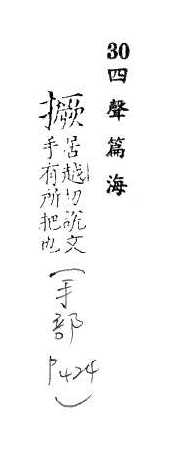 30四聲篇海
撅
居越切說文
手有所把也
(手部 P424)